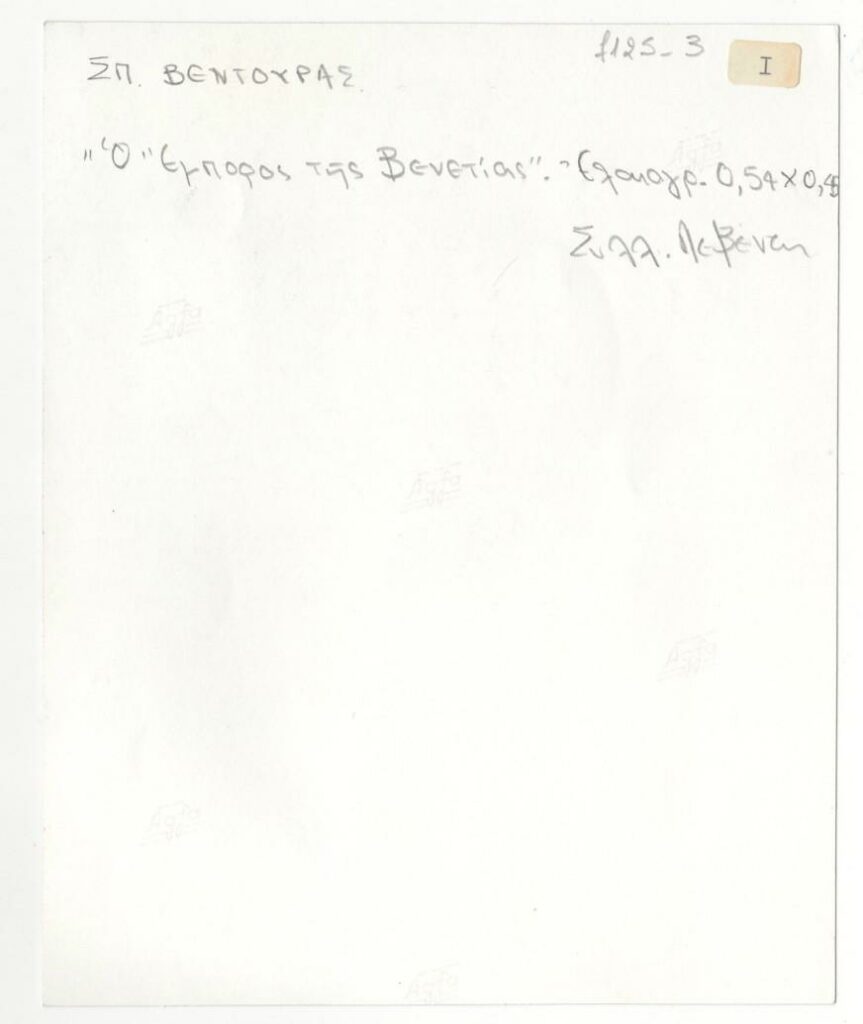 1125-3
I
ΣΠ. ΒΕΝΤΟΥΡΑΣ.
"Ὁ Ἔμπορος τῆς Βενετίας". Ἐλαιογρ. 0,54 x 0,45
Συλλ. Λεβέντη
Agfa
Agfa
Agfa
Agfa
Agfa
Agfa